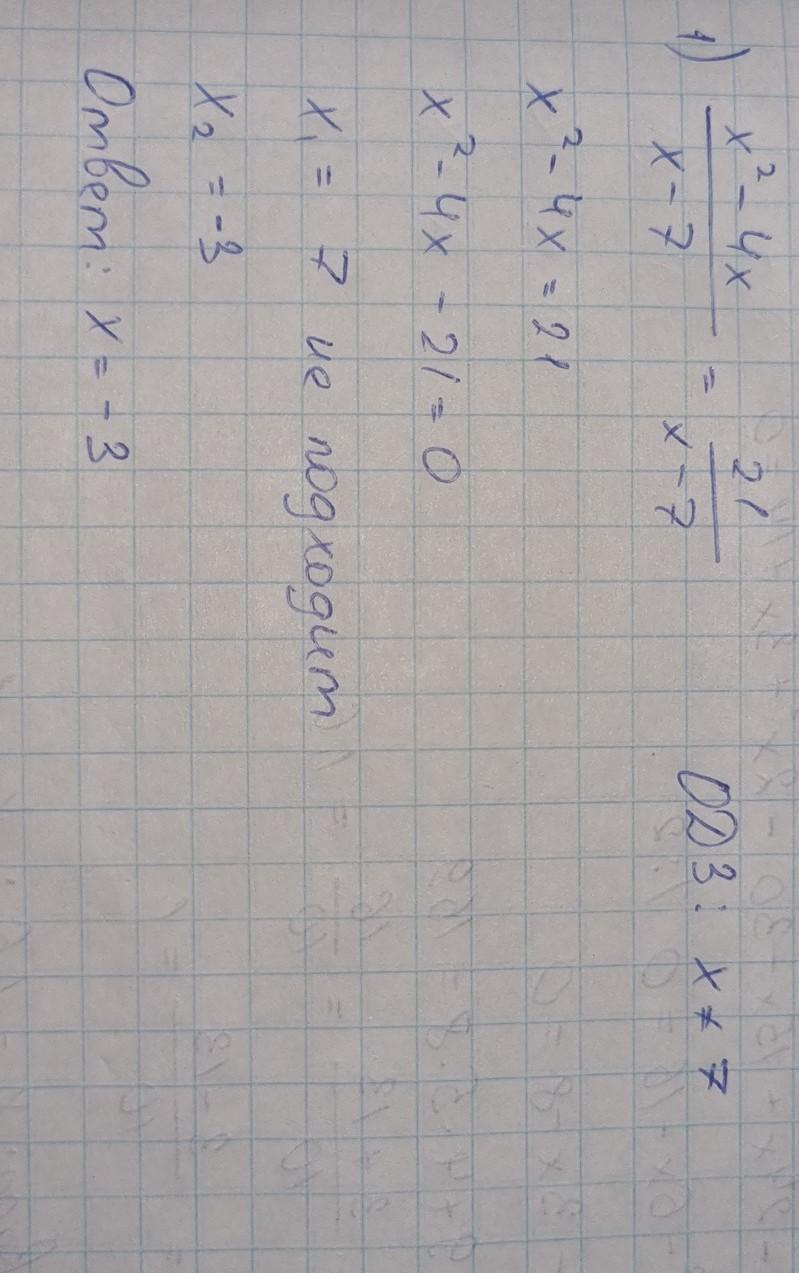 1) (x² - 4x)/(x - 7) = 21/(x - 7) ОДЗ: x ≠ 7
x² - 4x = 21
x² - 4x - 21 = 0
x₁ = 7 не подходит
x₂ = -3
Ответ: x = -3